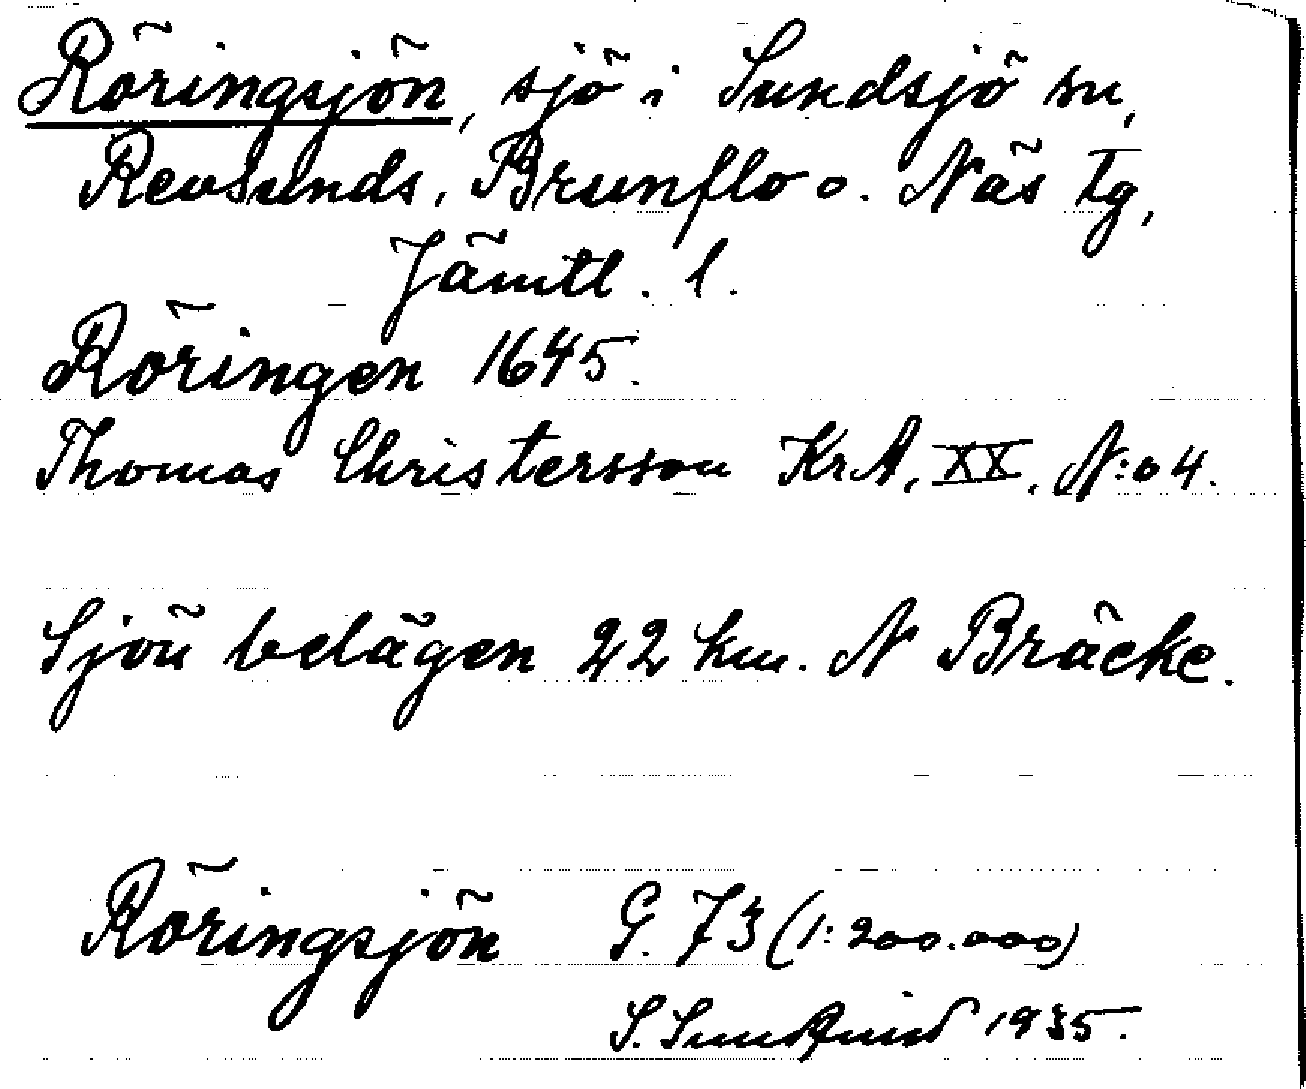 Röringsjön, sjö i Sundsjö sn,
Revsunds, Brunflo o. Näs tg,
Jämtl. l.
Röringen 1645.
Thomas Christersson KrA, XX, N:o 4.
Sjön belägen 22 km. N Bräcke.
Röringsjön G. 73 (1:200.000)
S. Sundkvist 1935.